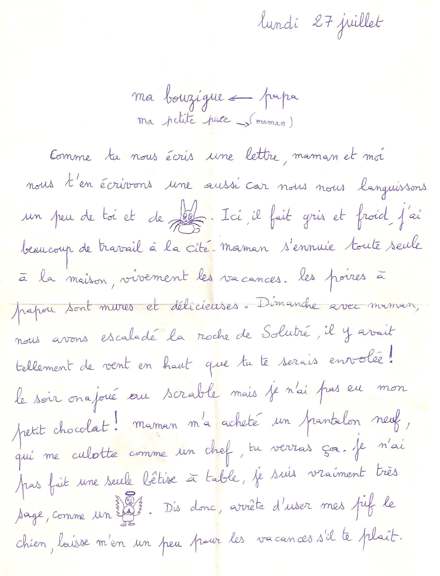 lundi 27 juillet
ma bouzigue ← papa
ma petite puce → (maman)
Comme tu nous écris une lettre, maman et moi
nous t'en écrivons une aussi car nous nous languissons
un peu de toi et de . Ici, il fait gris et froid, j'ai
beaucoup de travail à la cité. maman s'ennuie toute seule
à la maison, vivement les vacances. les poires à
papou sont mures et délicieuses. Dimanche avec maman,
nous avons escaladé la roche de Solutré, il y avait
tellement de vent en haut que tu te serais envolée !
le soir on a joué au scrable mais je n'ai pas eu mon
petit chocolat ! maman m'a acheté un pantalon neuf,
qui me culotte comme un chef, tu verras ça. je n'ai
pas fait une seule bêtise à table, je suis vraiment très
sage, comme un . Dis donc, arrête d'user mes pif le
chien, laisse m'en un peu pour les vacances s'il te plait.